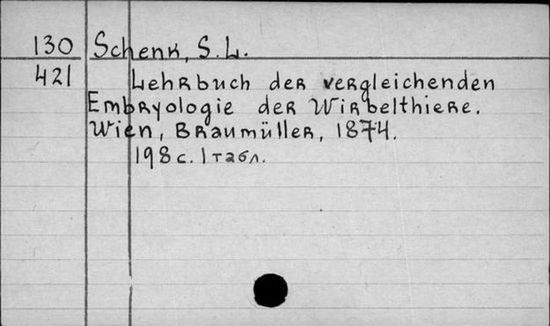 130 Schenk, S.L.
421 Lehrbuch der vergleichenden
Embryologie der Wirbelthiere.
Wien, Braumüller, 1874.
198 с. 1 табл.